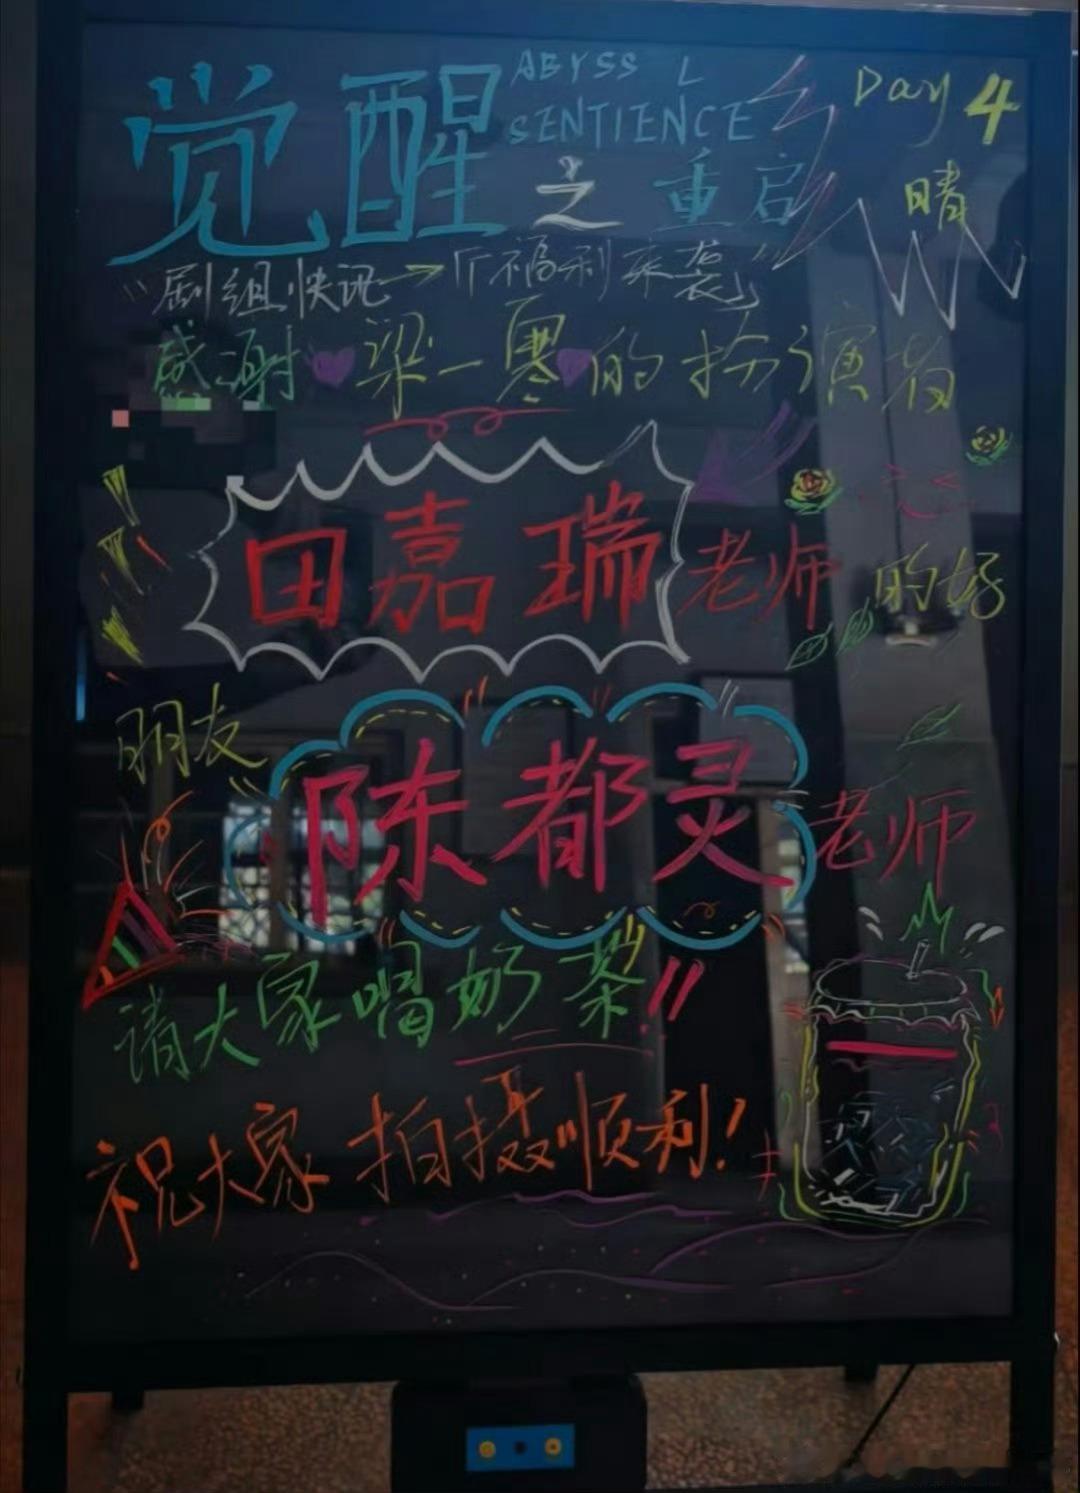 觉醒 ABYSS L
SENTIENCE
Day 4
之重启
晴
“剧组快讯→「福利来袭」”
感谢梁一寒的扮演者
田嘉瑞老师的好
朋友
陈都灵老师
请大家喝奶茶!!
祝大家拍摄顺利!